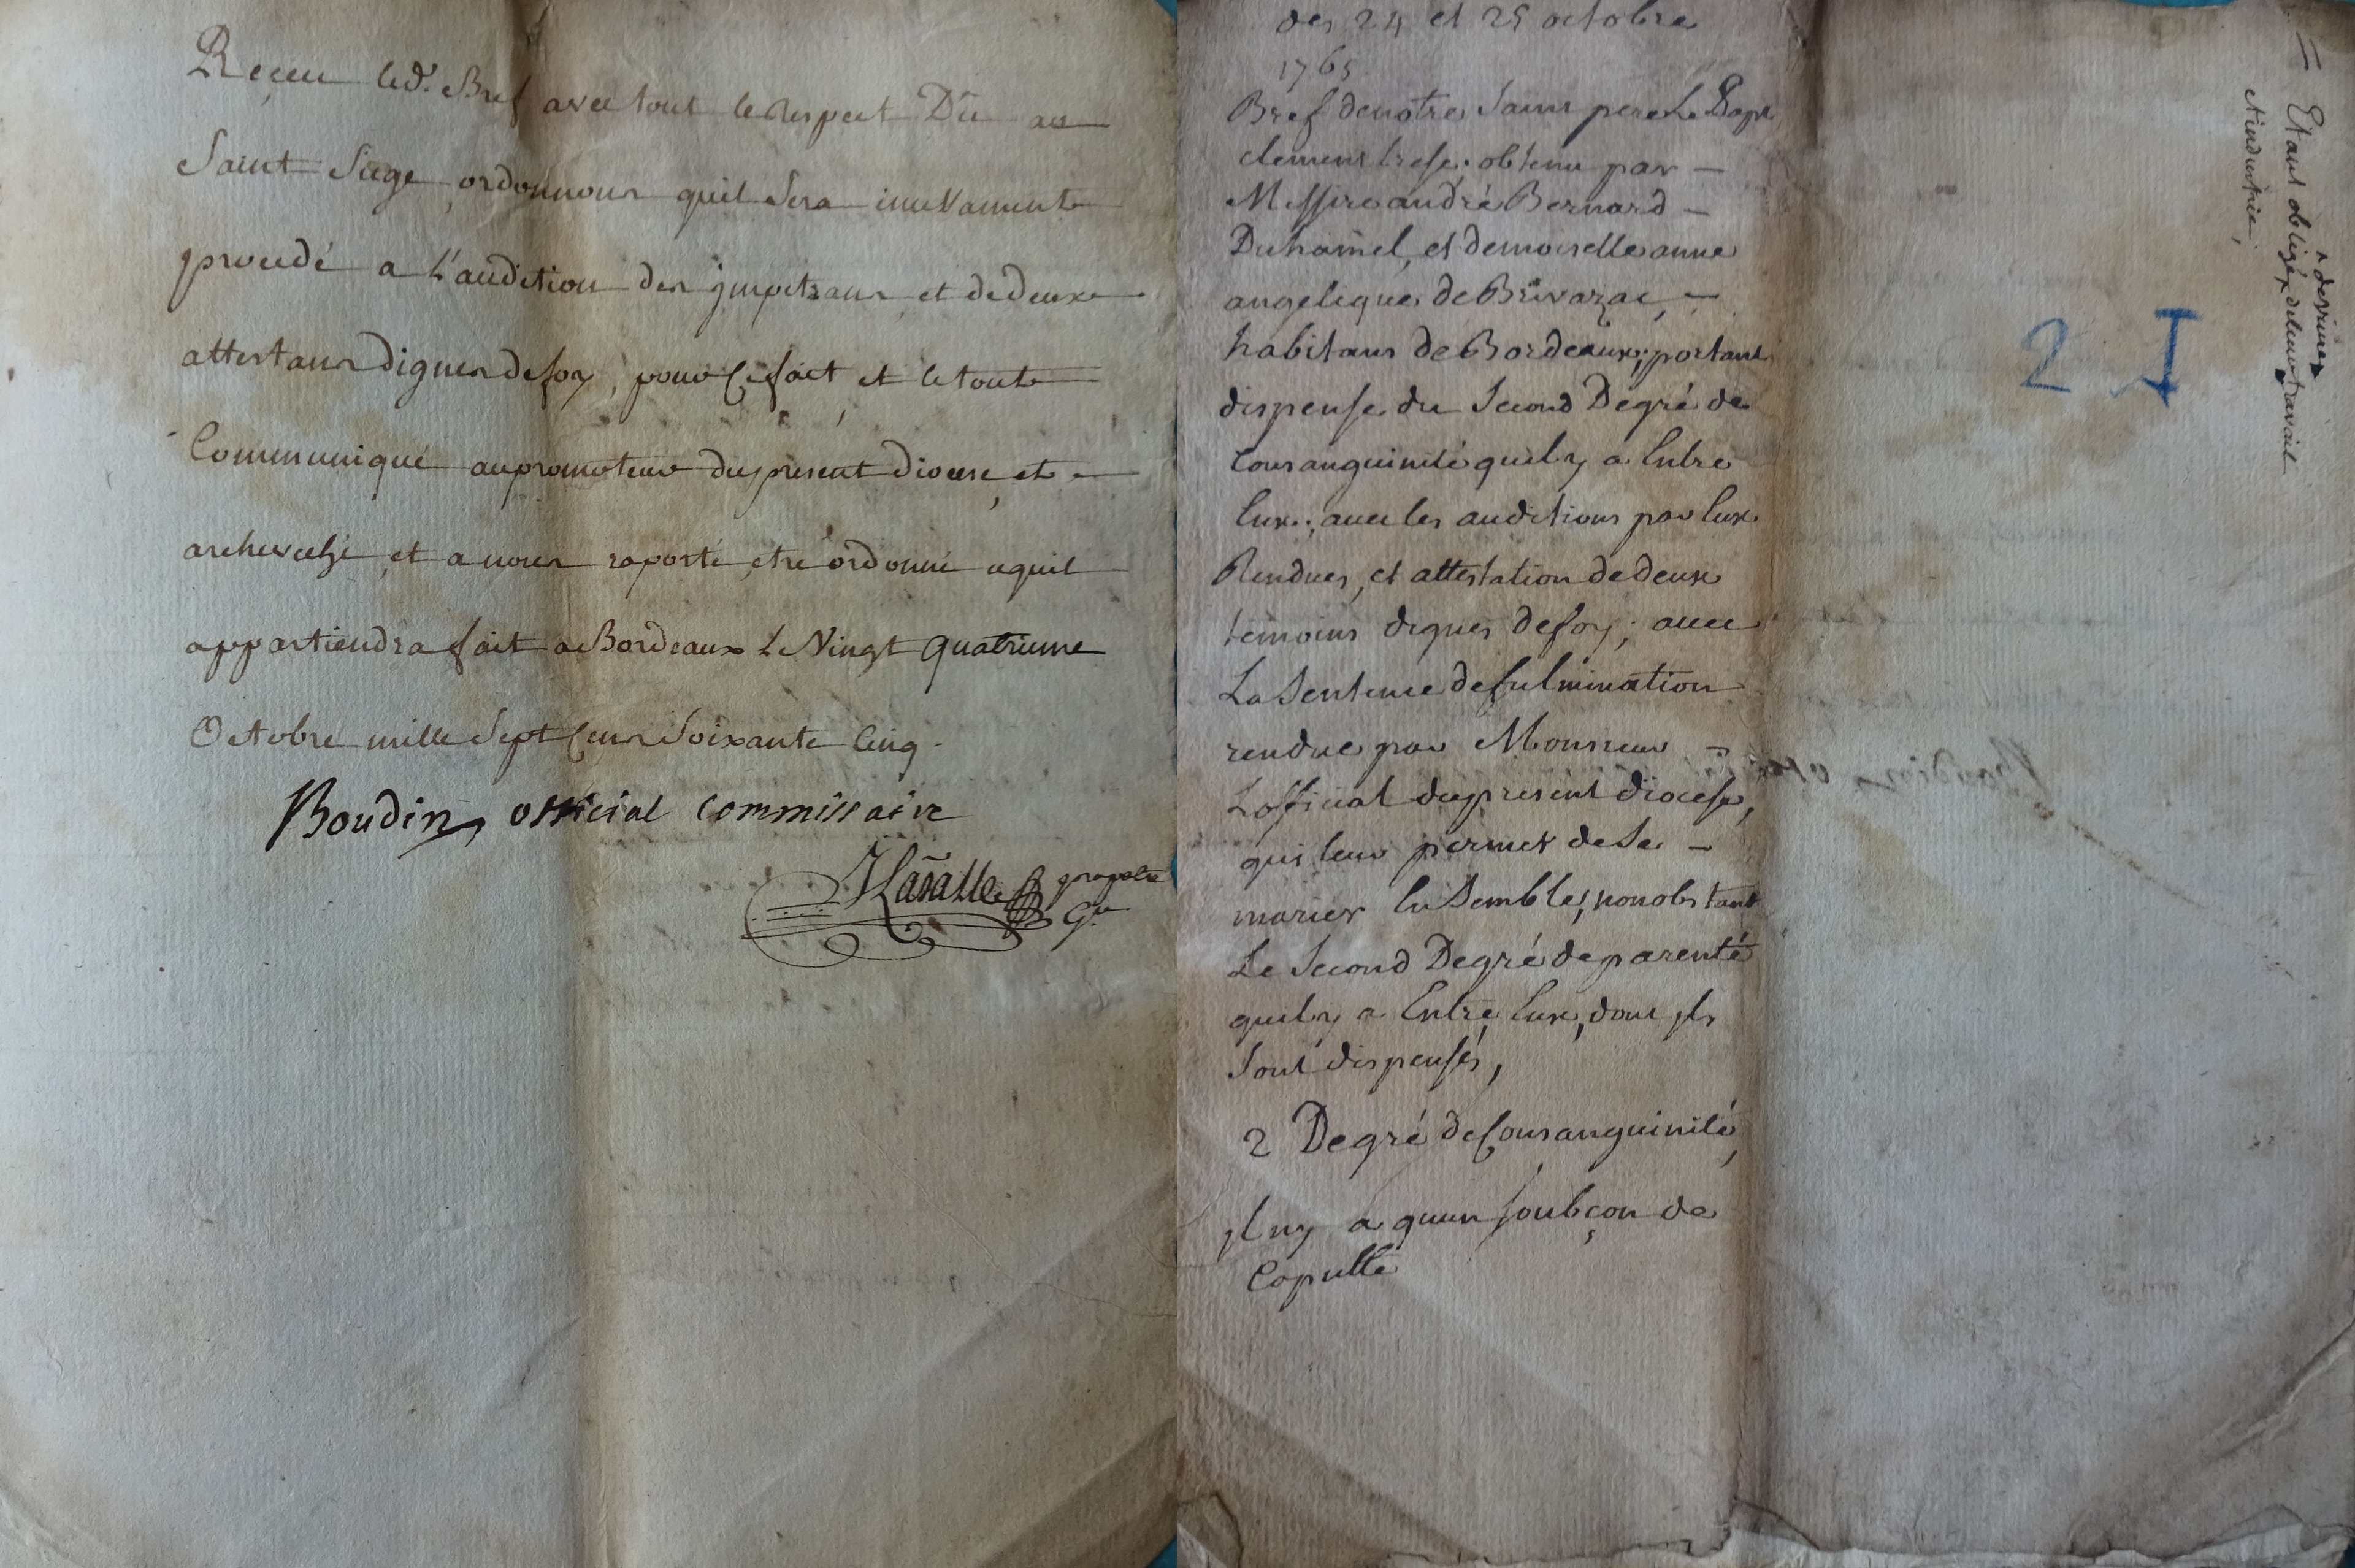 Reçeu led.t Bref avec tout le respect Dû au
Saint Siege, ordonnons quil sera incessamment
procedé a L'audition des jmpetrans et de deux
attestans dignes de foy, pour Ce fait et le tout
Communiqué au promoteur du present diocese, et
archevesché, et a nous raporté, etre ordonné cequil
appartiendra fait a Bordeaux Le Vingt quatrieme
Octobre mille Sept Cens Soixante Cinq.
Boudin, official commissaire
Lasalle
des 24 et 25 octobre
1765
Bref de notre Saint pere Le Pape
clement trese, obtenu par —
Messire andré Bernard —
Duhamel, et demoiselle anne
angelique de Brivazac, —
habitans de Bordeaux; portant
dispense du Second Degré de
Consanguinité quil y a Entre
Eux; avec les auditions par Eux
Rendues, et attestation de deux
temoins dignes de foy; avec
La Sentence de fulmination
rendue par Monsieur —
Lofficial du present diocese,
qui leur permet de Se —
marier Ensemble, nonobstant
Le Second Degré de parenté
quil y a Entre Eux, dont jls
Sont dispensés,
2 Degré de Consanguinité,
jl ny a quun soubçon de
Copulle
2 I
= Etant obligéz de leur travail
^ de vivre
et industrie,